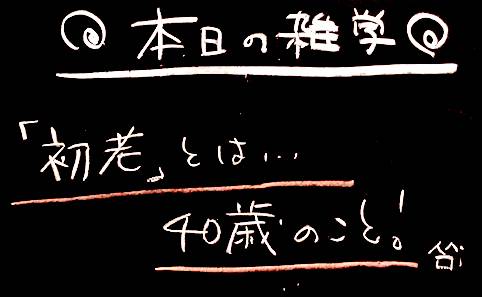 本日の雑学
「初老」とは...
40歳のこと!